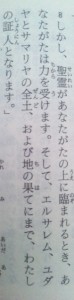 8 しかし、聖霊があなたがたの上に臨まれるとき、あ
なたがたは力を受けます。そして、エルサレム、ユダ
ヤとサマリヤの全土、および地の果てにまで、わたし
の証人となります。」